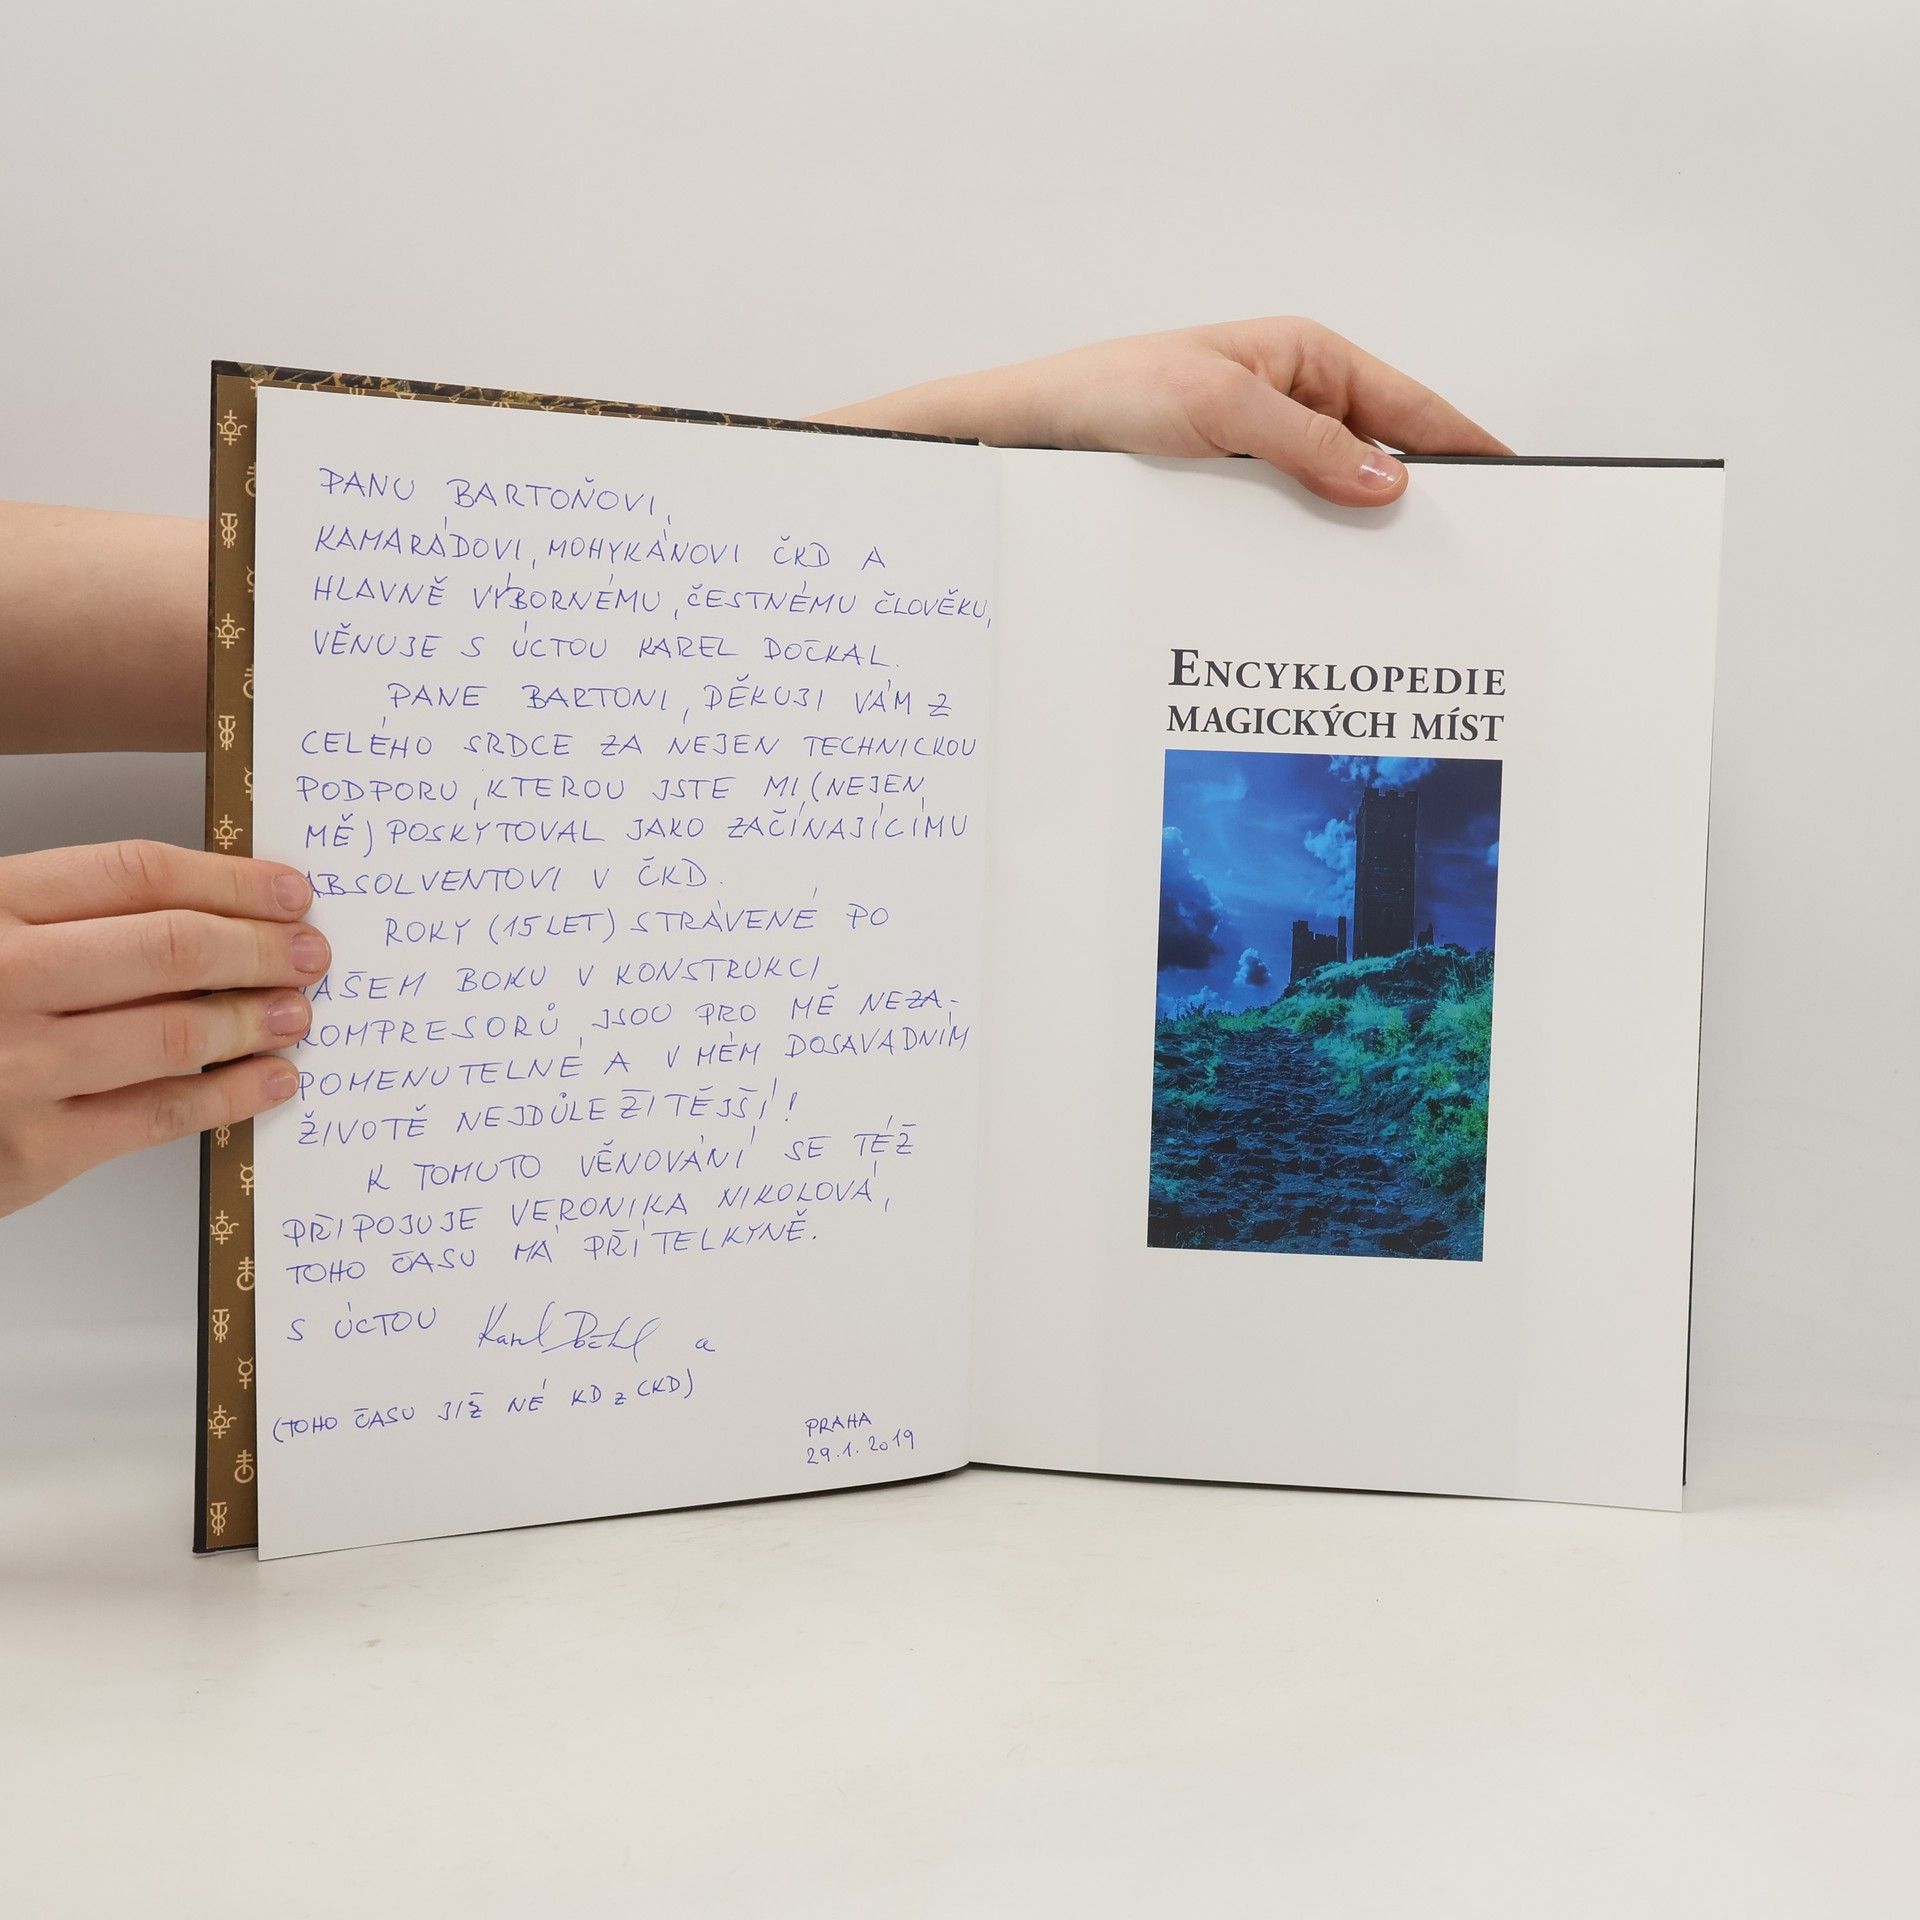 PANU BARTOŇOVI,
KAMARÁDOVI, MOHYKÁNOVI ČKD A
HLAVNĚ VÝBORNÉMU, ČESTNÉMU ČLOVĚKU,
VĚNUJE S ÚCTOU KAREL DOČKAL.
PANE BARTONI, DĚKUJI VÁM Z
CELÉHO SRDCE ZA NEJEN TECHNICKOU
PODPORU, KTEROU JSTE MI (NEJEN
MĚ) POSKYTOVAL JAKO ZAČÍNAJÍCÍMU
ABSOLVENTOVI V ČKD.
ROKY (15 LET) STRÁVENÉ PO
VAŠEM BOKU V KONSTRUKCI
KOMPRESORŮ, JSOU PRO MĚ NEZA-
POMENUTELNÉ A V MÉM DOSAVADNÍM
ŽIVOTĚ NEJDŮLEŽITĚJŠÍ!
K TOMUTO VĚNOVÁNÍ SE TÉŽ
PŘIPOJUJE VERONIKA NIKOLOVÁ,
TOHO ČASU MÁ PŘÍTELKYNĚ.
S ÚCTOU Karel Dočkal a
(TOHO ČASU JIŽ NÉ KD z ČKD)
PRAHA
29.1.2019
ENCYKLOPEDIE
MAGICKÝCH MÍST